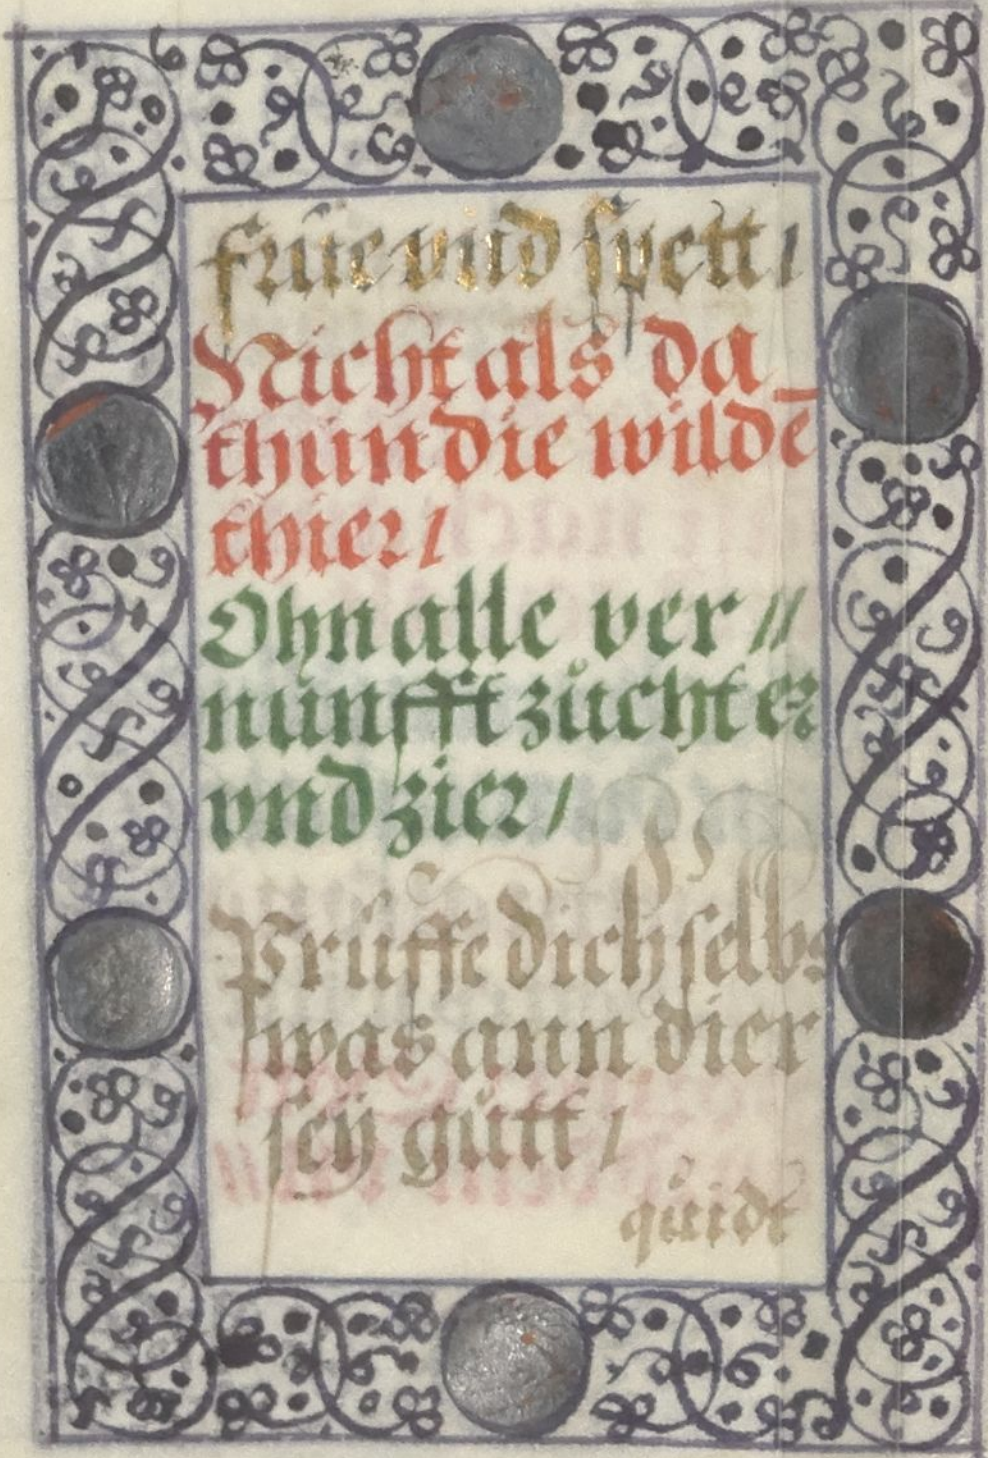 früe vnd spett /
Nicht als da
thün die wildē
thier /
Ohn alle ver //
nünfft zůcht er
vnd zier /
Prüffe dich selbs
was ann dier
seÿ gůtt /